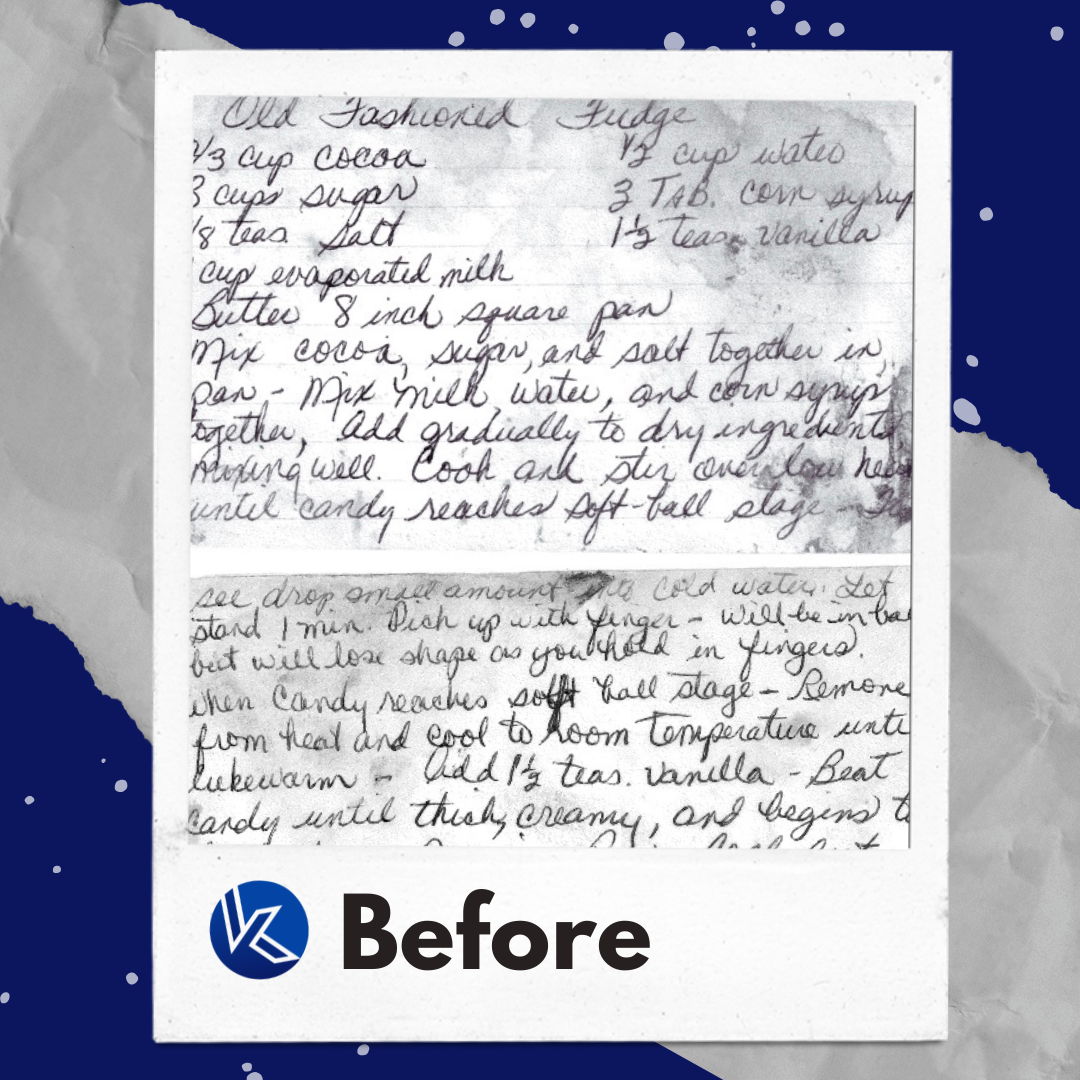 Old Fashioned Fudge
/3 cup cocoa 1/2 cup water
3 cups sugar 3 TAB. corn syrup
/8 teas. Salt 1 1/2 teas. vanilla
cup evaporated milk
Butter 8 inch square pan
Mix cocoa, sugar, and salt together in
pan - Mix milk, water, and corn syrup
together, Add gradually to dry ingredients
mixing well. Cook and stir over low hea
until candy reaches soft-ball stage -
see drop small amount into cold water. Let
stand 1 min. Pick up with finger - will be in ba
but will lose shape as you hold in fingers.
when Candy reaches soft ball stage - Remove
from heat and cool to room temperature unti
lukewarm - Add 1 1/2 teas. vanilla - Beat
candy until thick, creamy, and begins t
Before